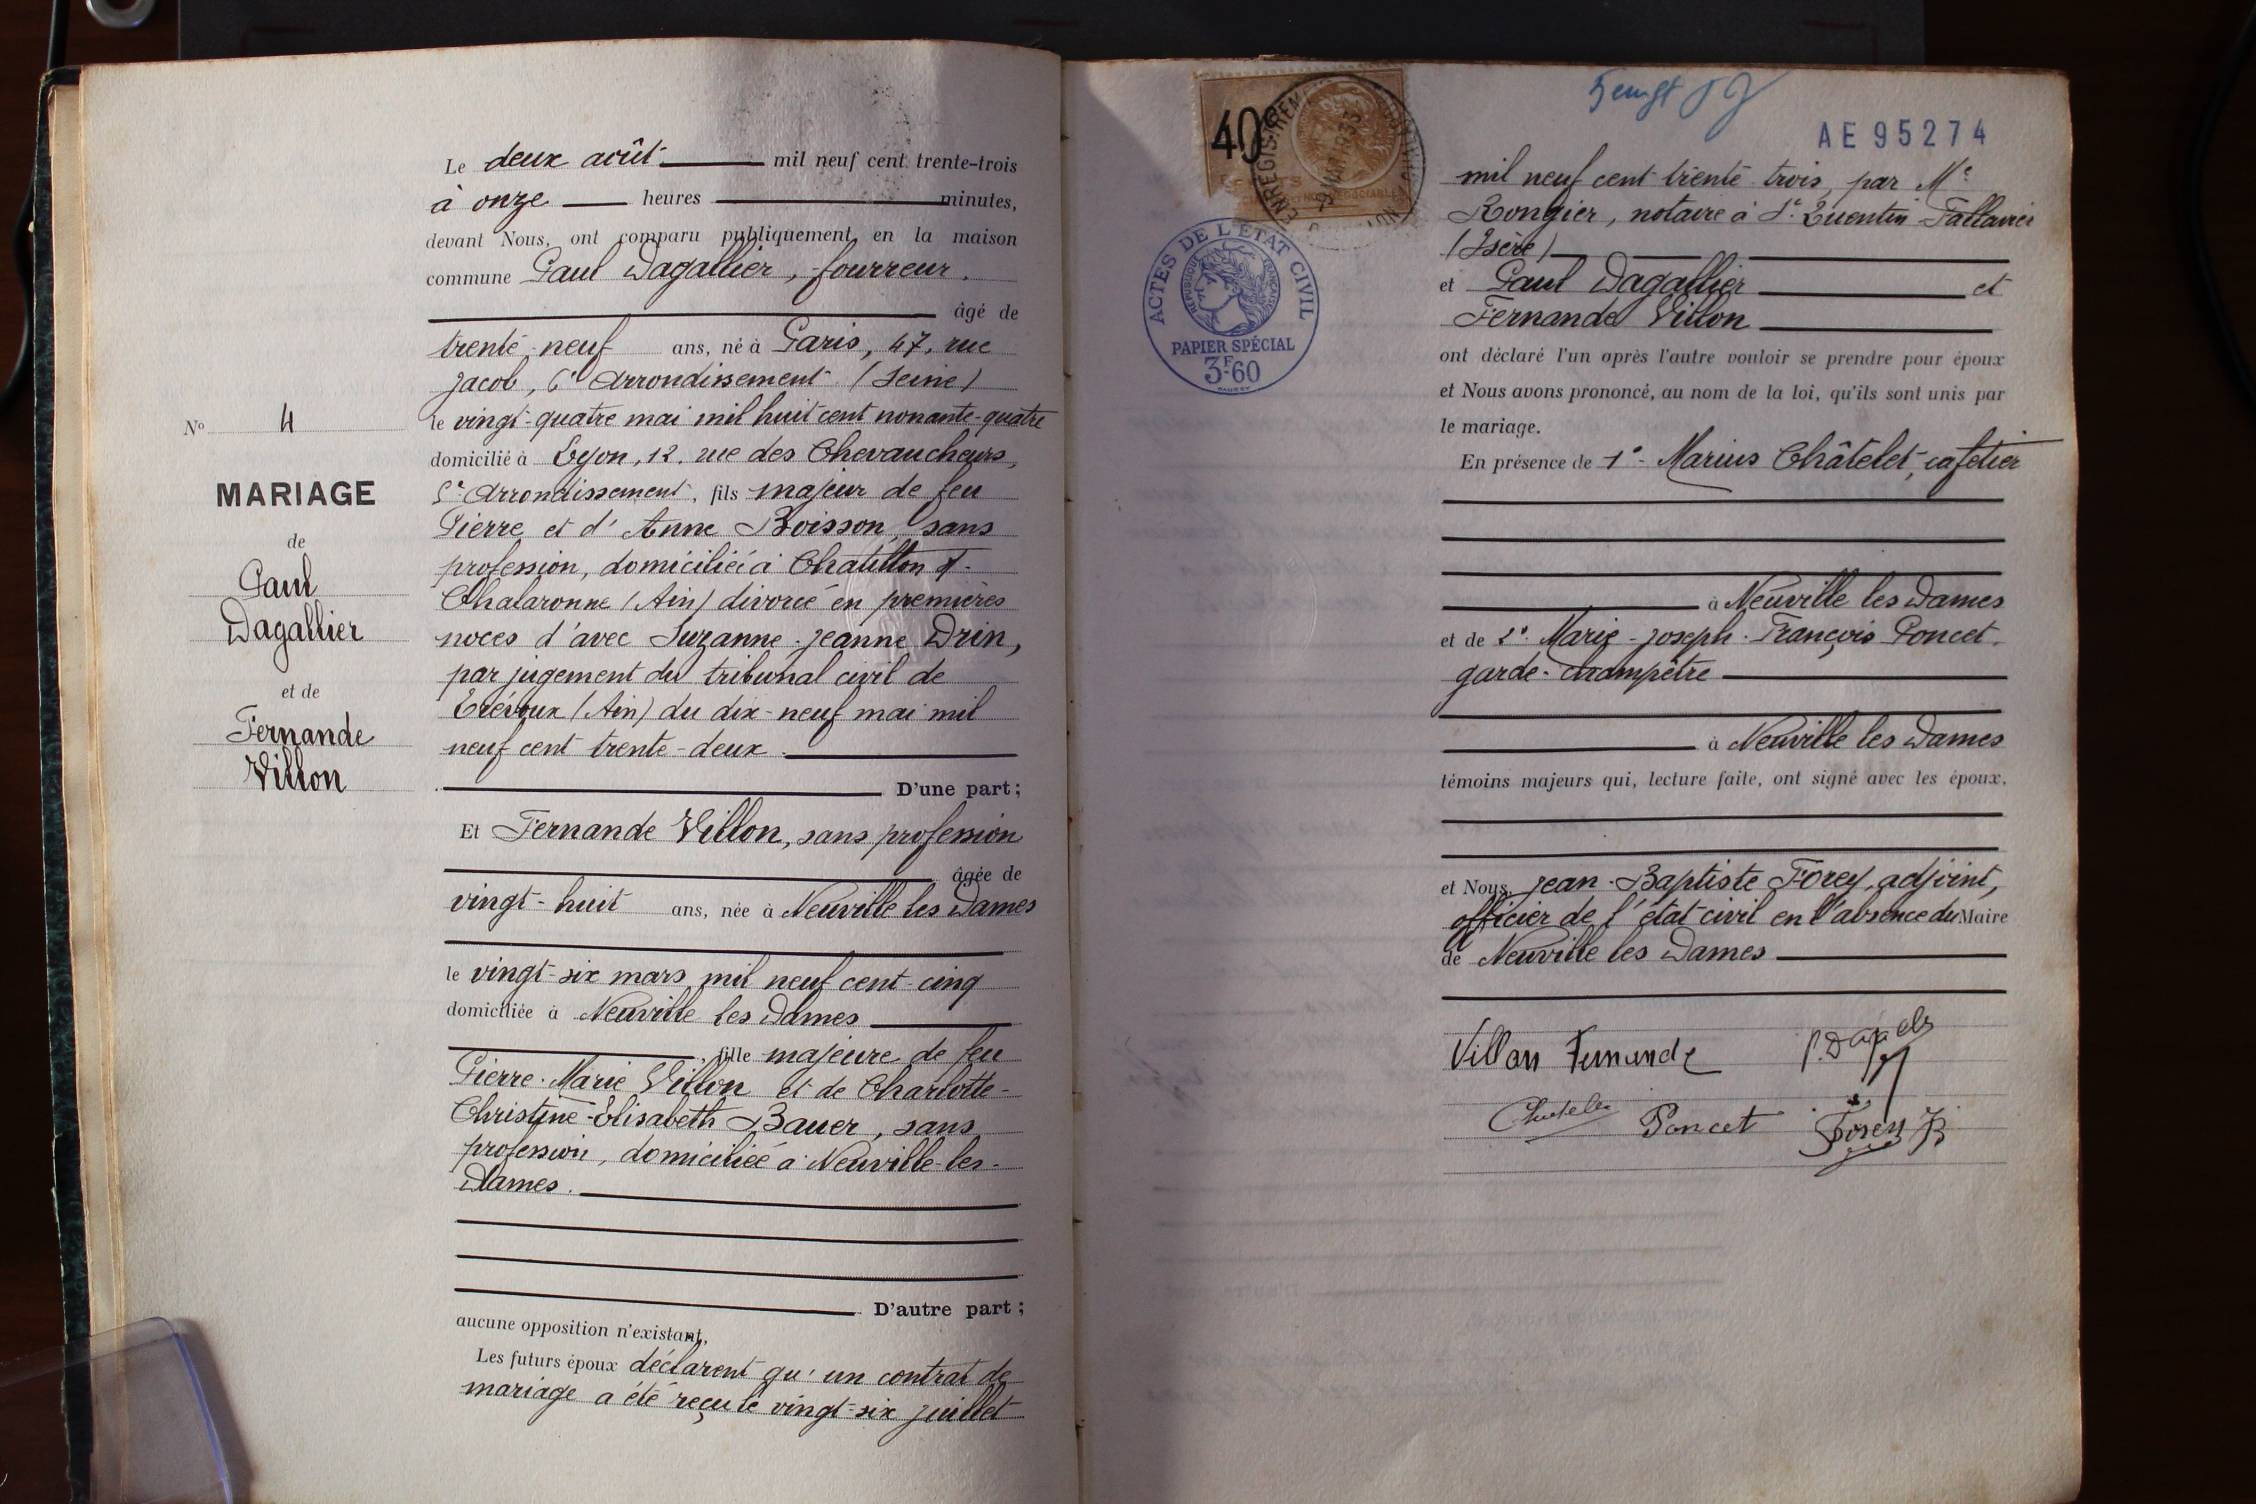 Le deux août mil neuf cent trente-trois
à onze heures minutes,
devant Nous, ont comparu publiquement en la maison
commune Paul Dagallier, fourreur.
âgé de
trente-neuf ans, né à Paris, 47, rue
Jacob, 6e Arrondissement (Seine)
le vingt-quatre mai mil huit cent nonante-quatre
domicilié à Lyon, 12, rue des Chevaucheurs,
5e Arrondissement, fils majeur de feu
Pierre et d'Anne Boisson, sans
profession, domiciliée à Chatillon s/-
Chalaronne (Ain) divorcé en premières
noces d'avec Suzanne-Jeanne Drin,
par jugement du tribunal civil de
Trévoux (Ain) du dix-neuf mai mil
neuf cent trente-deux.
D'une part;
Et Fernande Villon, sans profession
âgée de
vingt-huit ans, née à Neuville les Dames
le vingt-six mars mil neuf cent cinq
domiciliée à Neuville les Dames
, fille majeure de feu
Pierre-Marie Villon et de Charlotte-
Christine-Elisabeth Bauer, sans
profession, domiciliée à Neuville-les-
Dames.
D'autre part;
aucune opposition n'existant,
Les futurs époux déclarent qu'un contrat de
mariage a été reçu le vingt-six juillet
No 4
MARIAGE
de
Paul
Dagallier
et de
Fernande
Villon
40c
ENREGISTREMENT
9 MAI 1933
ACTES DE L'ETAT CIVIL
REPUBLIQUE FRANÇAISE
PAPIER SPÉCIAL
3F.60
AE 95274
mil neuf cent trente trois, par Me
Rongier, notaire à St. Quentin-Fallavier
(Isère)
et Paul Dagallier et
Fernande Villon
ont déclaré l'un après l'autre vouloir se prendre pour époux
et Nous avons prononcé, au nom de la loi, qu'ils sont unis par
le mariage.
En présence de 1°- Marius Châtelet, cafetier
à Neuville les Dames
et de 2°- Marie-Joseph-François Poncet.
garde-champêtre
à Neuville les Dames
témoins majeurs qui, lecture faite, ont signé avec les époux.
et Nous, Jean-Baptiste Forey, adjoint,
officier de l'état civil en l'absence du Maire
de Neuville les Dames
Villon Fernande
Chatelet Poncet Forey JB